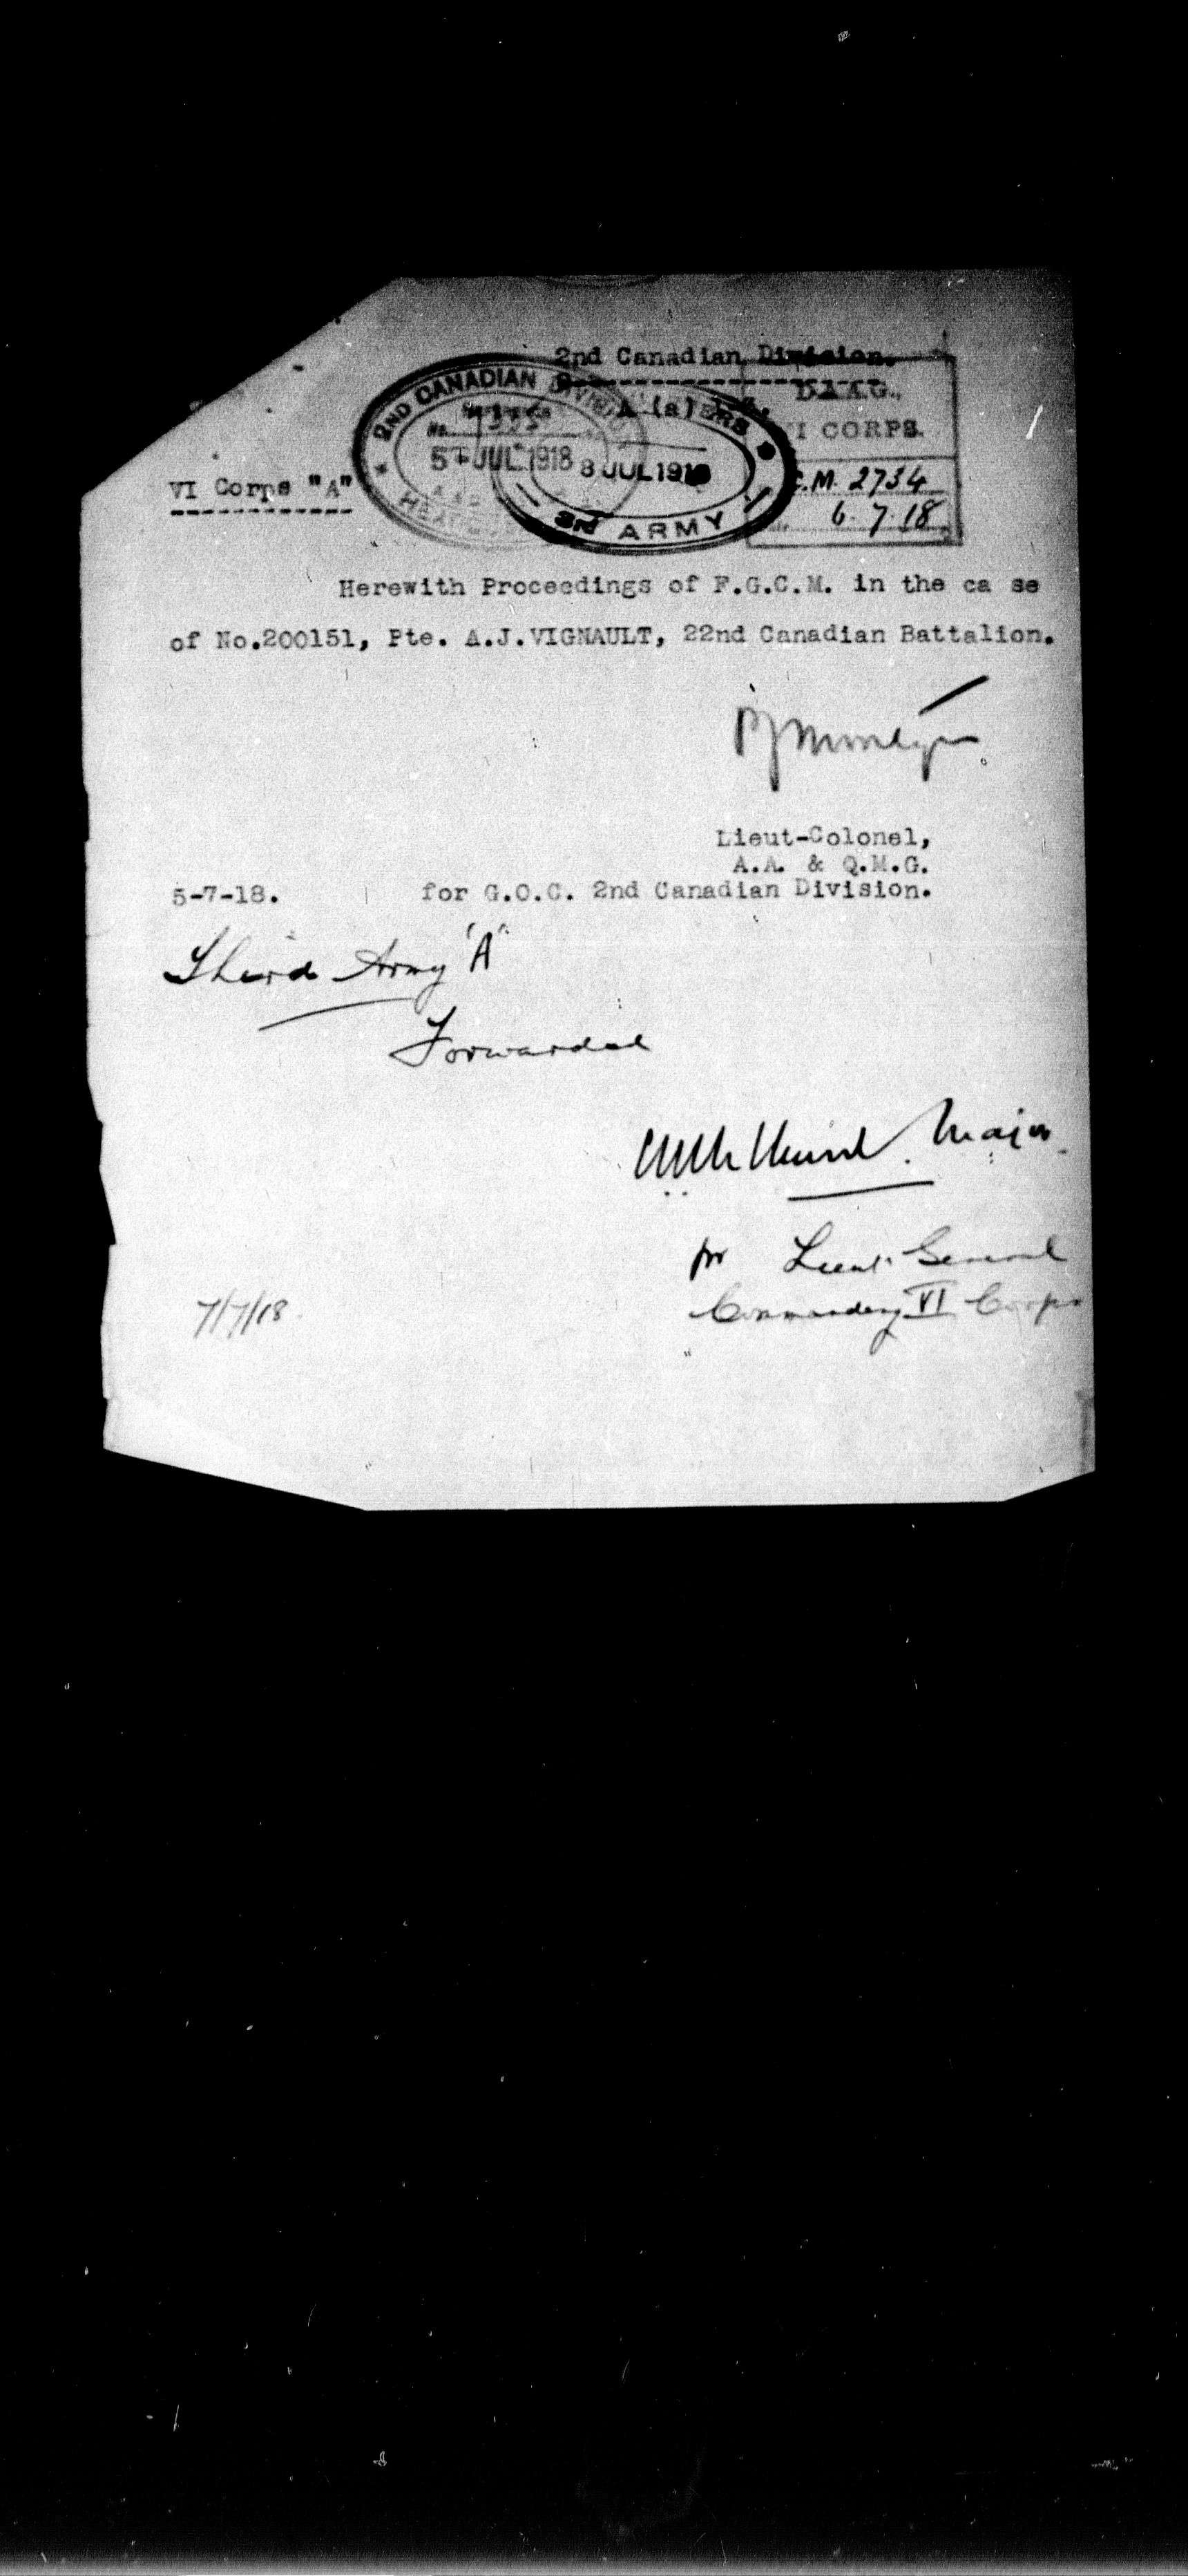 2nd Canadian Division.
A (a)
2ND CANADIAN
5 - JUL 1918
8 JUL 1918
3rd ARMY
D.A.A.G.,
VI CORPS.
C.M. 2734
6-7-18
VI Corps "A"
Herewith Proceedings of F.G.C.M. in the ca se
of No.200151, Pte. A.J.VIGNAULT, 22nd Canadian Battalion.
Lieut-Colonel,
A.A. & Q.M.G.
5-7-18. for G.O.C. 2nd Canadian Division.
Third Army 'A'
Forwarded
Major
for Lieut. General
7/7/18 Commanding VI Corps